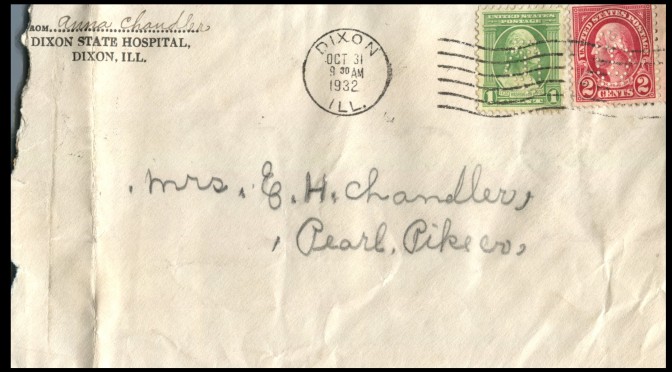 ROM Anna Chandler
DIXON STATE HOSPITAL,
DIXON, ILL.
DIXON
OCT 31
9 30 AM
1932
ILL.
UNITED STATES
POSTAGE
1 1
UNITED STATES POSTAGE
2 CENTS 2
Mrs. E. H. Chandler,
Pearl, Pike co,